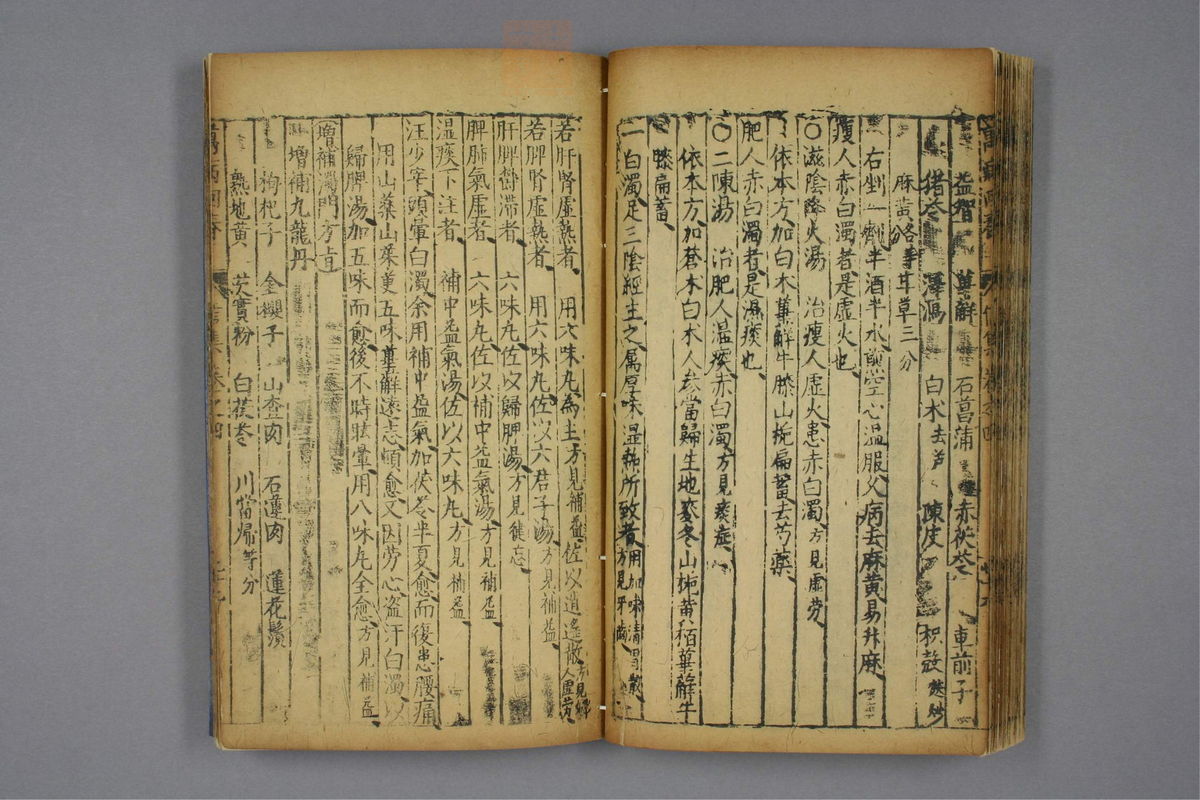 益智 萆薢 石菖蒲 赤茯苓 車前子
猪苓 澤瀉 白朮去芦 陳皮 枳殼麩炒
麻黄各 甘草三分
右剉一劑半酒半水煎空心温服久病去麻黄易升麻
瘦人赤白濁者是虚火也
○滋陰降火湯 治瘦人虚火患赤白濁方見虚劳
依本方加白朮萆薢牛膝山梔扁蓄去芍藥
肥人赤白濁者是濕痰也
○二陳湯 治肥人濕痰赤白濁方見痰症
依本方加蒼朮白朮人参當歸生地麥冬山梔黄栢萆薢牛
膝扁蓄
一白濁足三陰經主之属厚味湿熱所致者用加味清胃散方見牙齒
若肝腎虚熱者 用六味丸為主方見補益佐以逍遥散
若脾腎虚熱者 用六味丸佐以六君子湯方見補益
肝脾欝滞者 六味丸佐以歸脾湯方見健忘
脾肺氣虚者 六味丸佐以補中益氣湯方見補益
湿痰下注者 補中益氣湯佐以六味丸方見補益
汪少宰頭暈白濁余用補中益氣加茯苓半夏愈而復患腰痛
用山藥山茱萸五味萆薢遠志頓愈又因劳心盗汗白濁以
歸脾湯加五味而愈後不時眩暈用八味丸全愈方見補益
增補濁門方
增補九龍丹
枸杞子 金櫻子 山查肉 石蓮肉 蓮花鬚
熟地黄 芡實粉 白茯苓 川當帰等分